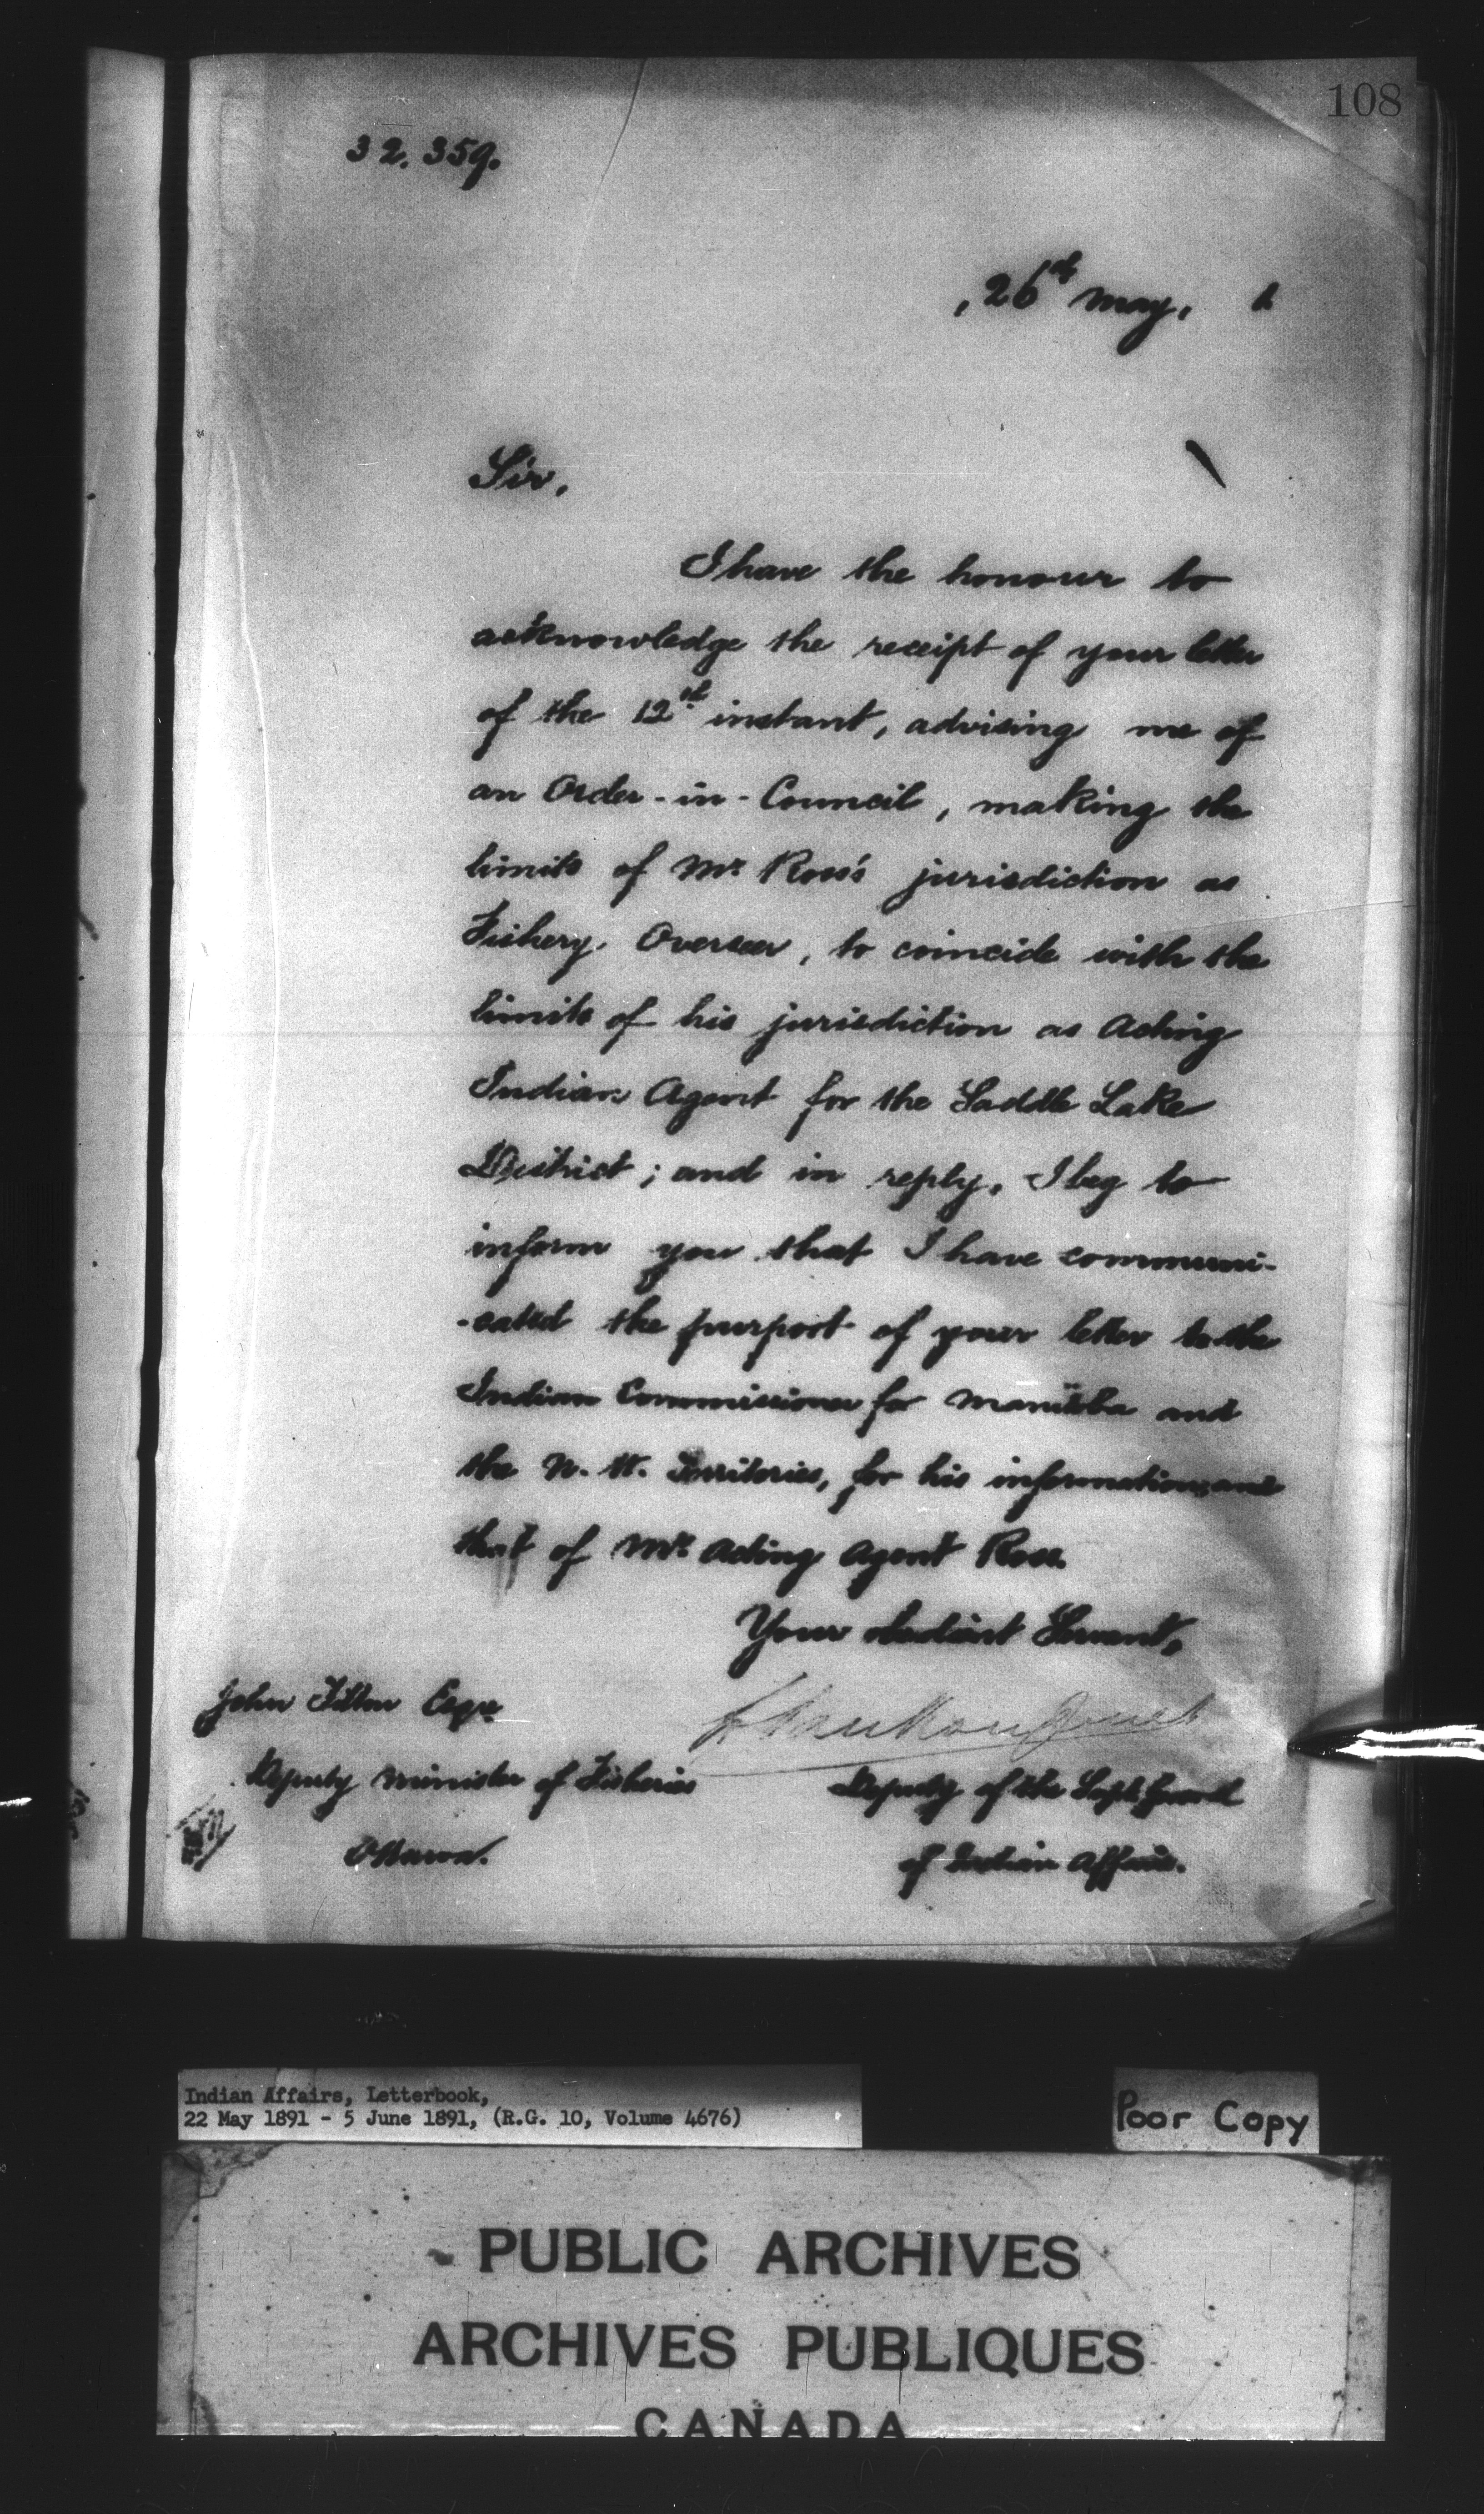 108
32.359.
, 26th May, 1
Sir,
I have the honour to
acknowledge the receipt of your letter
of the 12th instant, advising me of
an Order-in-Council, making the
limits of Mr Ross's jurisdiction as
Fishery Overseer, to coincide with the
limits of his jurisdiction as Acting
Indian Agent for the Saddle Lake
District; and in reply, I beg to
inform you that I have communi-
-cated the purport of your letter to the
Indian Commissioner for Manitoba and
the N. W. Territories, for his information, and
that of Mr Acting Agent Ross.
Your obedient Servant,
John Tilton Esqre
L Vankoughnet
Deputy Minister of Fisheries
Deputy of the Supt. General
Ottawa.
of Indian Affairs.
Indian Affairs, Letterbook,
22 May 1891 - 5 June 1891, (R.G. 10, Volume 4676)
Poor Copy
PUBLIC ARCHIVES
ARCHIVES PUBLIQUES
CANADA